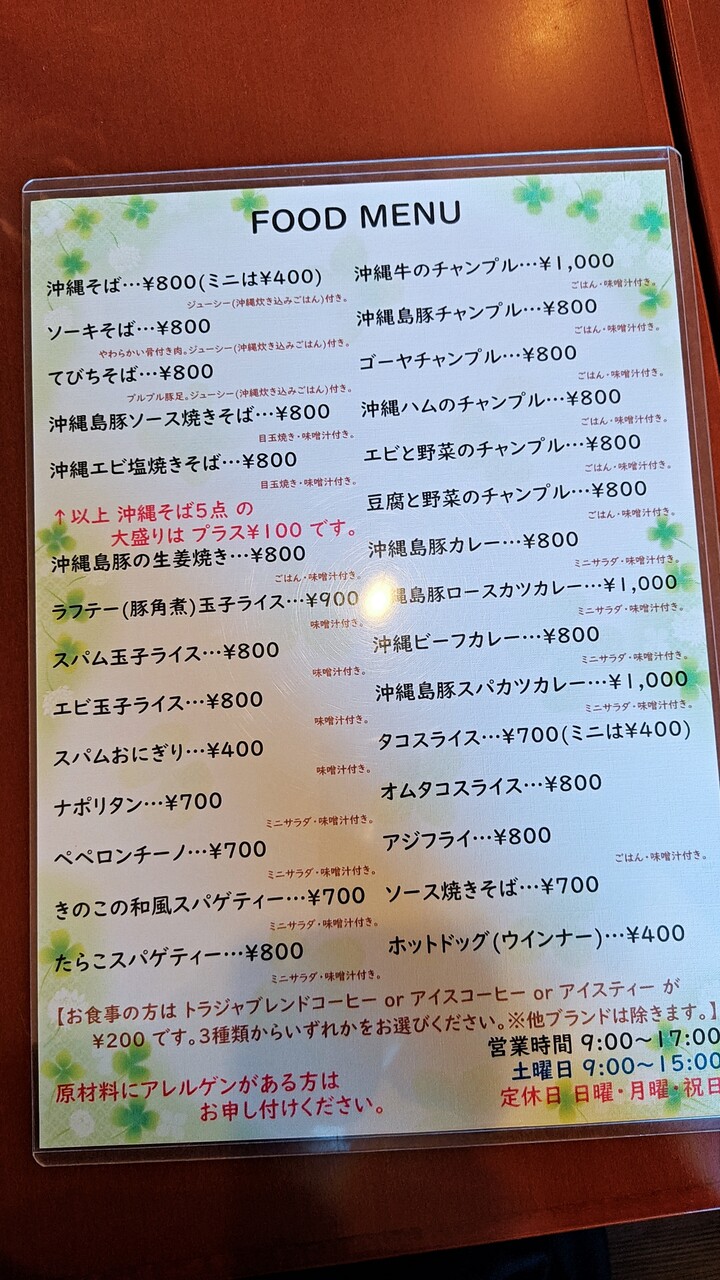 FOOD MENU
沖縄そば…¥800(ミニは¥400)
ジューシー(沖縄炊き込みごはん)付き。
ソーキそば…¥800
やわらかい骨付き肉。ジューシー(沖縄炊き込みごはん)付き。
てびちそば…¥800
プルプル豚足。ジューシー(沖縄炊き込みごはん)付き。
沖縄島豚ソース焼きそば…¥800
目玉焼き・味噌汁付き。
沖縄エビ塩焼きそば…¥800
目玉焼き・味噌汁付き。
↑以上 沖縄そば5点 の
大盛りは プラス¥100 です。
沖縄島豚の生姜焼き…¥800
ごはん・味噌汁付き。
ラフテー(豚角煮)玉子ライス…¥900
味噌汁付き。
スパム玉子ライス…¥800
味噌汁付き。
エビ玉子ライス…¥800
味噌汁付き。
スパムおにぎり…¥400
味噌汁付き。
ナポリタン…¥700
ミニサラダ・味噌汁付き。
ペペロンチーノ…¥700
ミニサラダ・味噌汁付き。
きのこの和風スパゲティー…¥700
ミニサラダ・味噌汁付き。
たらこスパゲティー…¥800
ミニサラダ・味噌汁付き。
沖縄牛のチャンプル…¥1,000
ごはん・味噌汁付き。
沖縄島豚チャンプル…¥800
ごはん・味噌汁付き。
ゴーヤチャンプル…¥800
ごはん・味噌汁付き。
沖縄ハムのチャンプル…¥800
ごはん・味噌汁付き。
エビと野菜のチャンプル…¥800
ごはん・味噌汁付き。
豆腐と野菜のチャンプル…¥800
ごはん・味噌汁付き。
沖縄島豚カレー…¥800
ミニサラダ・味噌汁付き。
縄島豚ロースカツカレー…¥1,000
ミニサラダ・味噌汁付き。
沖縄ビーフカレー…¥800
ミニサラダ・味噌汁付き。
沖縄島豚スパカツカレー…¥1,000
ミニサラダ・味噌汁付き。
タコスライス…¥700(ミニは¥400)
オムタコスライス…¥800
アジフライ…¥800
ごはん・味噌汁付き。
ソース焼きそば…¥700
ホットドッグ(ウインナー)…¥400
【お食事の方は トラジャブレンドコーヒー or アイスコーヒー or アイスティー が
¥200 です。3種類からいずれかをお選びください。※他ブランドは除きます。】
営業時間 9:00〜17:00
土曜日 9:00〜15:00
定休日 日曜・月曜・祝日
原材料にアレルゲンがある方は
お申し付けください。